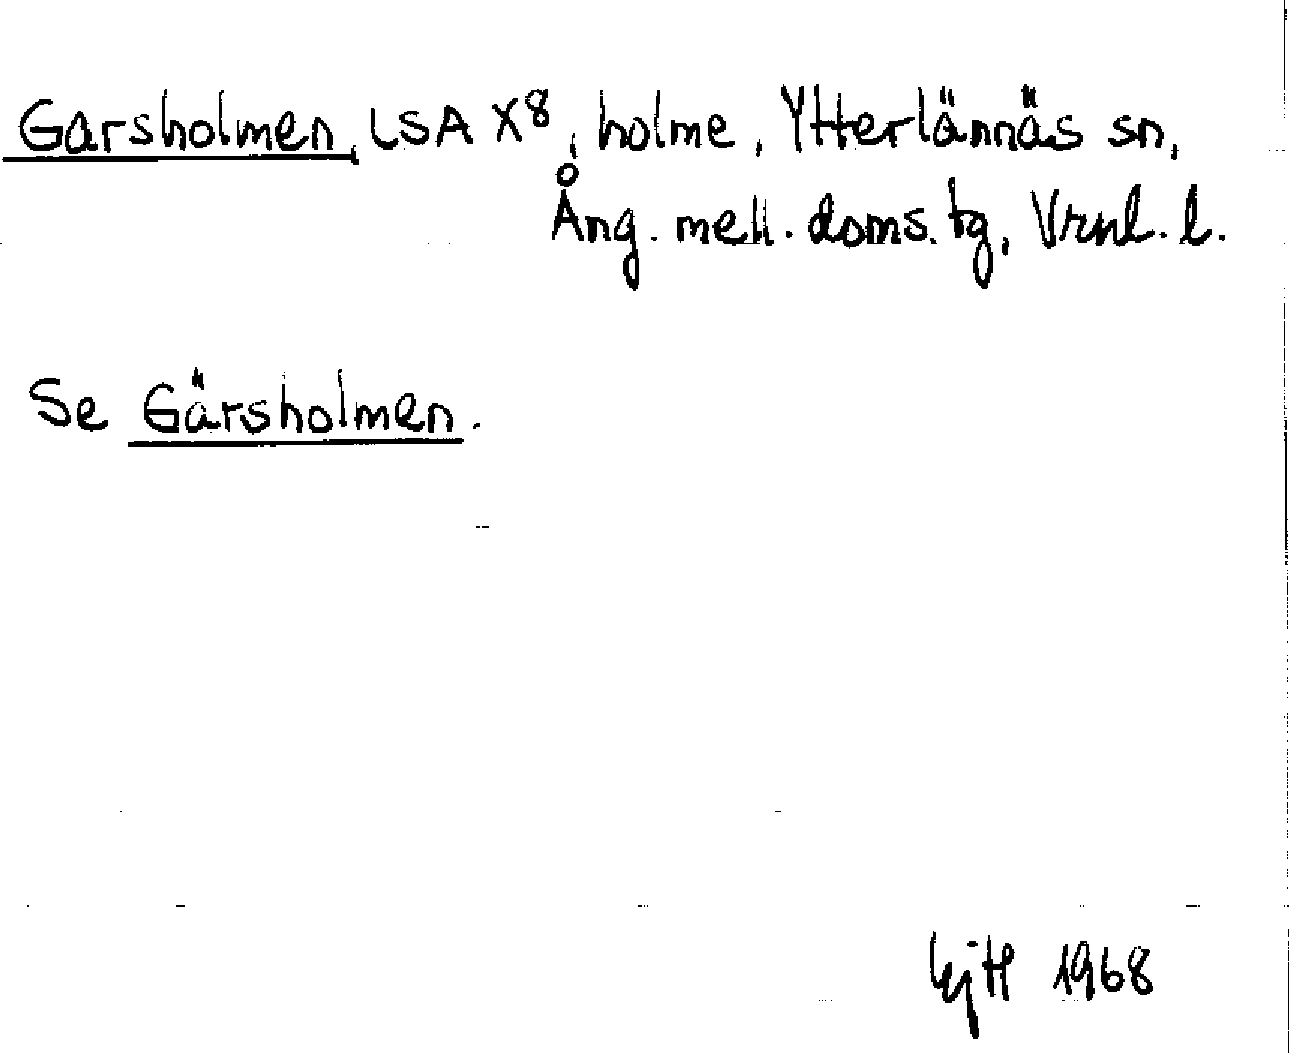 Garsholmen, LSA X8, holme, Ytterlännäs sn,
Ång. mell. doms. tg, Vrnl. l.
Se Gärsholmen.
1968